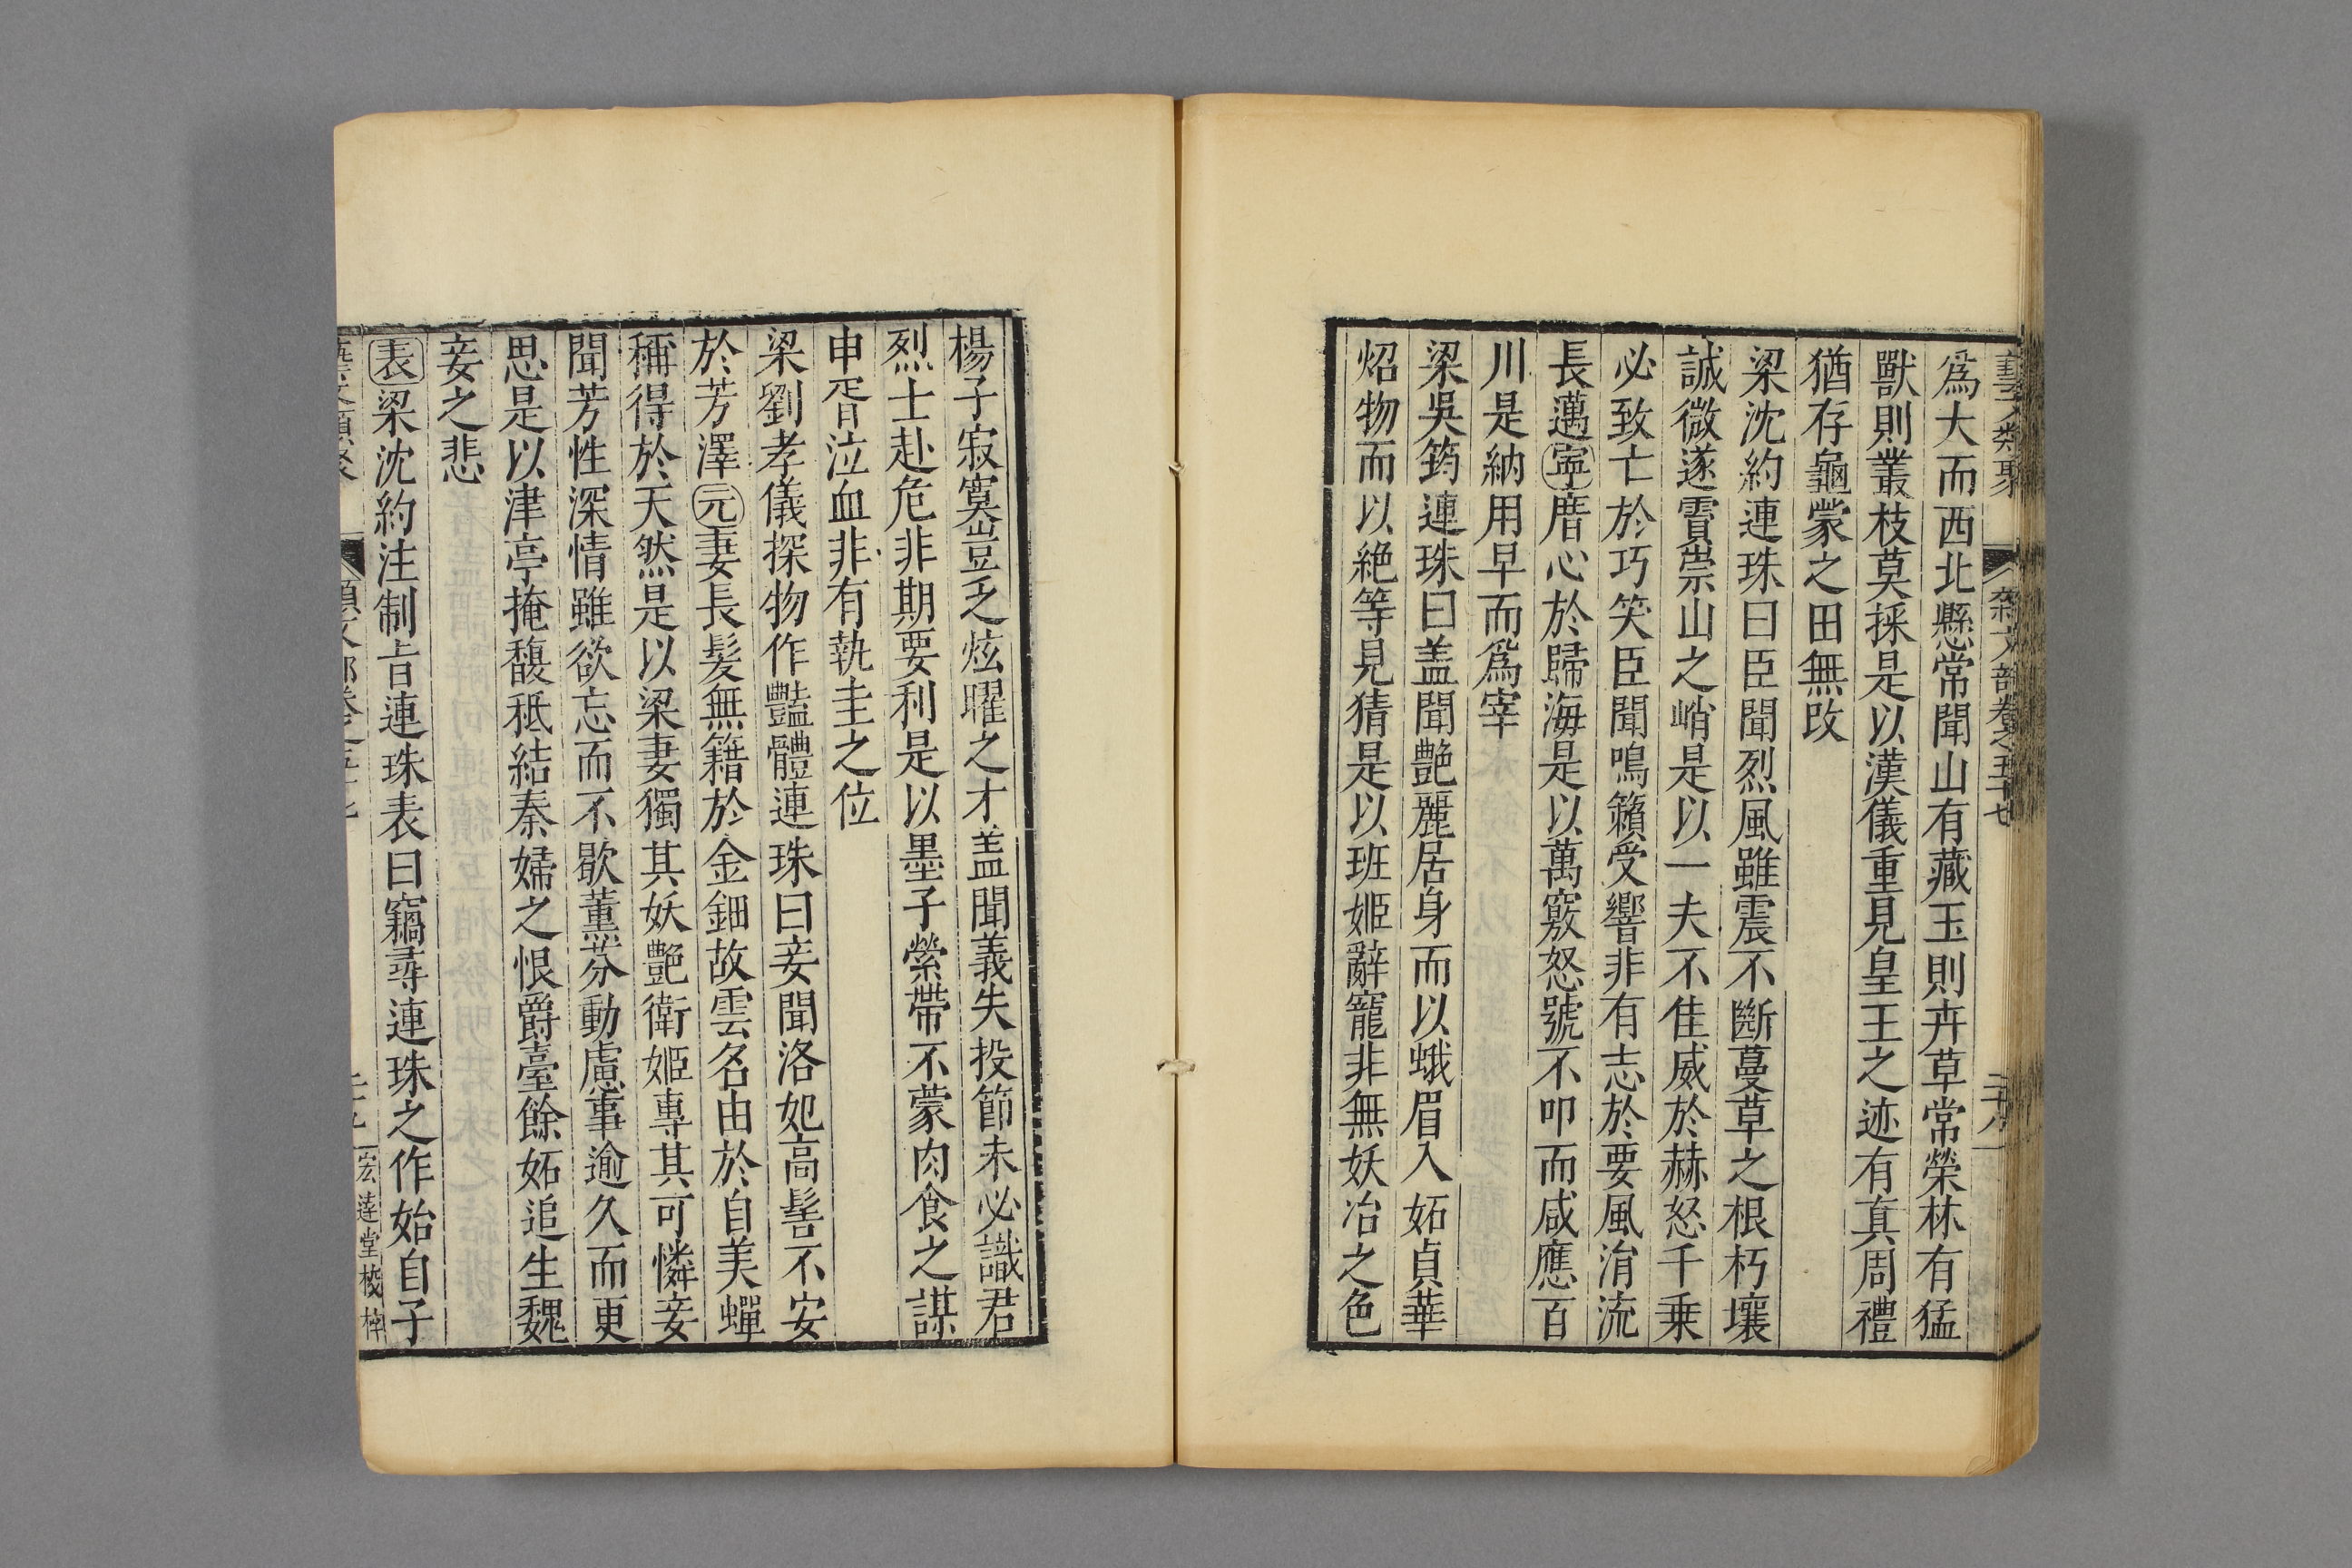 藝文類聚 雜文部卷之五十七 二十八
爲大而西北懸常聞山有藏玉則卉草常榮林有猛
獸則叢枝莫採是以漢儀重見皇王之迹有真周禮
猶存龜蒙之田無改
梁沈約連珠曰臣聞烈風雖震不斷蔓草之根朽壤
誠微遂霣崇山之峭是以一夫不隹威於赫怒千乗
必致亡於巧笑臣聞鳴籟受響非有志於要風涓流
長邁寧厝心於歸海是以萬竅怒號不叩而咸應百
川是納用早而爲宰
梁吳筠連珠曰盖聞艶麗居身而以蛾眉入妬貞華
炤物而以絶等見猜是以班姬辭寵非無妖冶之色
楊子寂寞豈乏炫曜之才盖聞義夫投節未必識君
烈士赴危非期要利是以墨子縈帶不蒙肉食之謀
申胥泣血非有執圭之位
梁劉孝儀探物作豔體連珠曰妾聞洛妃高髻不安
於芳澤元妻長髮無籍於金鈿故雲名由於自美蟬
稱得於天然是以梁妻獨其妖艶衛姬專其可憐妾
聞芳性深情雖欲忘而不歇薰芬動慮事逾久而更
思是以津亭掩馥秪結秦婦之恨爵臺餘妬追生魏
妾之悲
表梁沈約注制旨連珠表曰竊尋連珠之作始自子
宏達堂栞梓